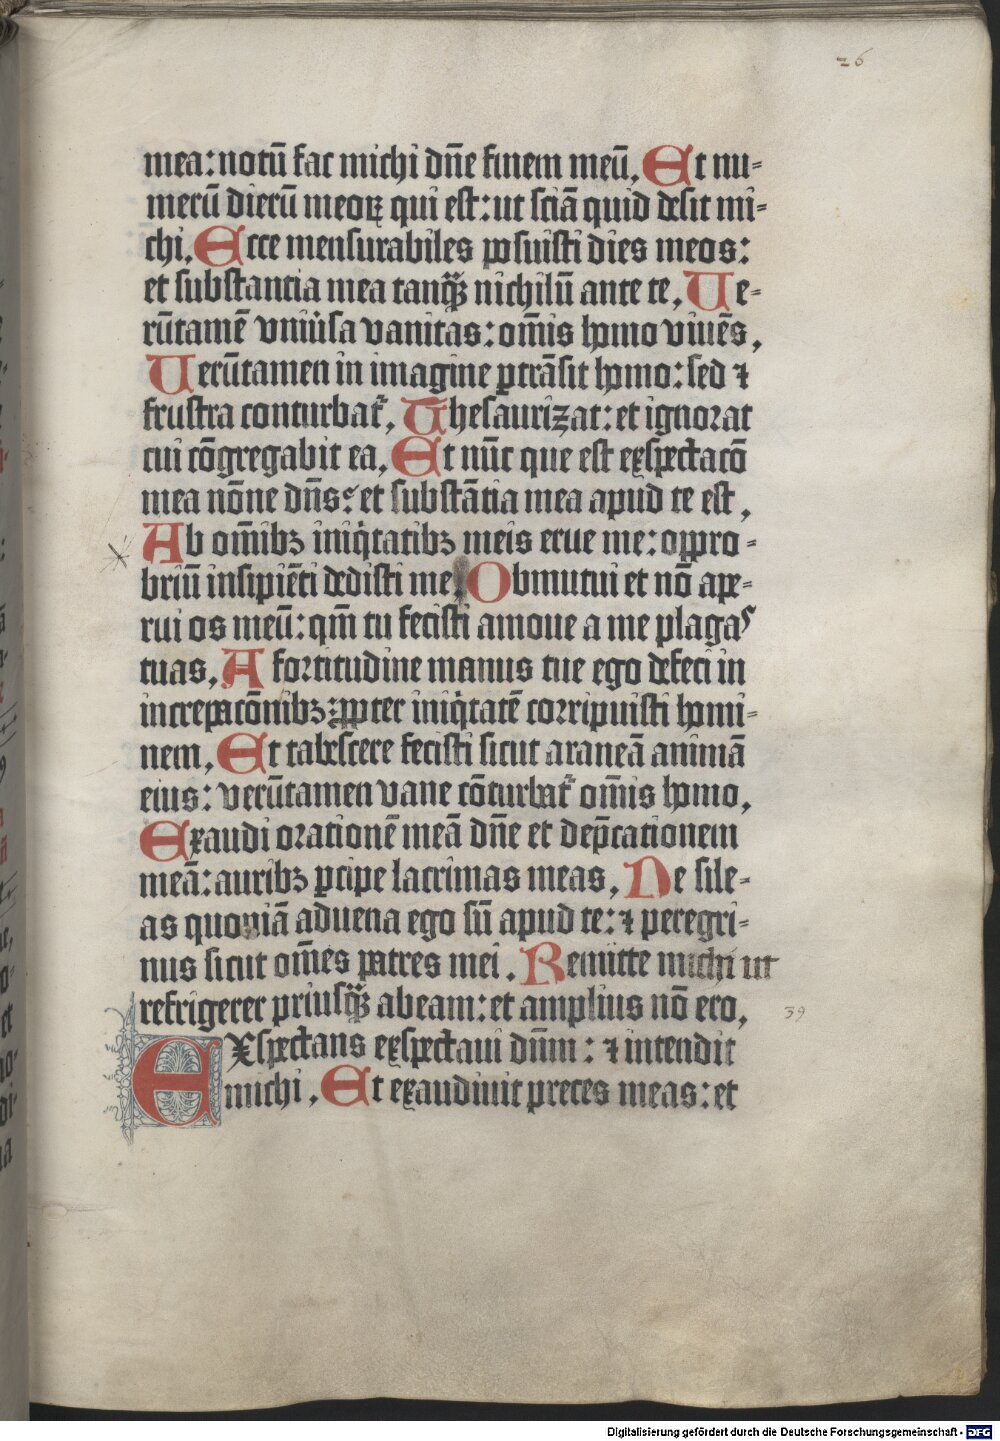 26
mea: notū fac michi dn̄e finem meū. Et nu-
merū dierū meoꝝ qui est: ut sciā quid desit mi-
chi. Ecce mensurabiles posuisti dies meos:
et substantia mea tanqꝫ nichilū ante te. Ue-
rūtamē vniūsa vanitas: om̄is homo viuēs.
Uerūtamen in imagine ꝑtrāsit homo: sed ⁊
frustra conturbat᷑. Thesaurizat: et ignorat
cui cōgregabit ea. Et nūc que est exspectacō
mea nōne dn̄s: et substātia mea apud te est.
Ab om̄ibꝫ iniq̇tatibꝫ meis erue me: oppro-
briū insipiēti dedisti me. Obmutui et nō ape-
rui os meū: qm̄ tu fecisti amoue a me plagas
tuas. A fortitudine manus tue ego defeci in
increpacōnibꝫ: ꝓpter iniq̇tatē corripuisti homi-
nem. Et tabescere fecisti sicut araneā animā
eius: verūtamen vane cōturbat᷑ om̄is homo.
Exaudi orationē meā dn̄e et dep̄cationem
meā: auribꝫ ꝑcipe lacrimas meas. Ne sile-
as quoniā aduena ego sū apud te: ⁊ peregri-
nus sicut om̄es patres mei. Remitte michi ut
refrigerer priusqꝫ abeam: et amplius nō ero.
39
EXspectans exspectaui dn̄m: ⁊ intendit
michi. Et exaudiuit preces meas: et
Digitalisierung gefördert durch die Deutsche Forschungsgemeinschaft - DFG